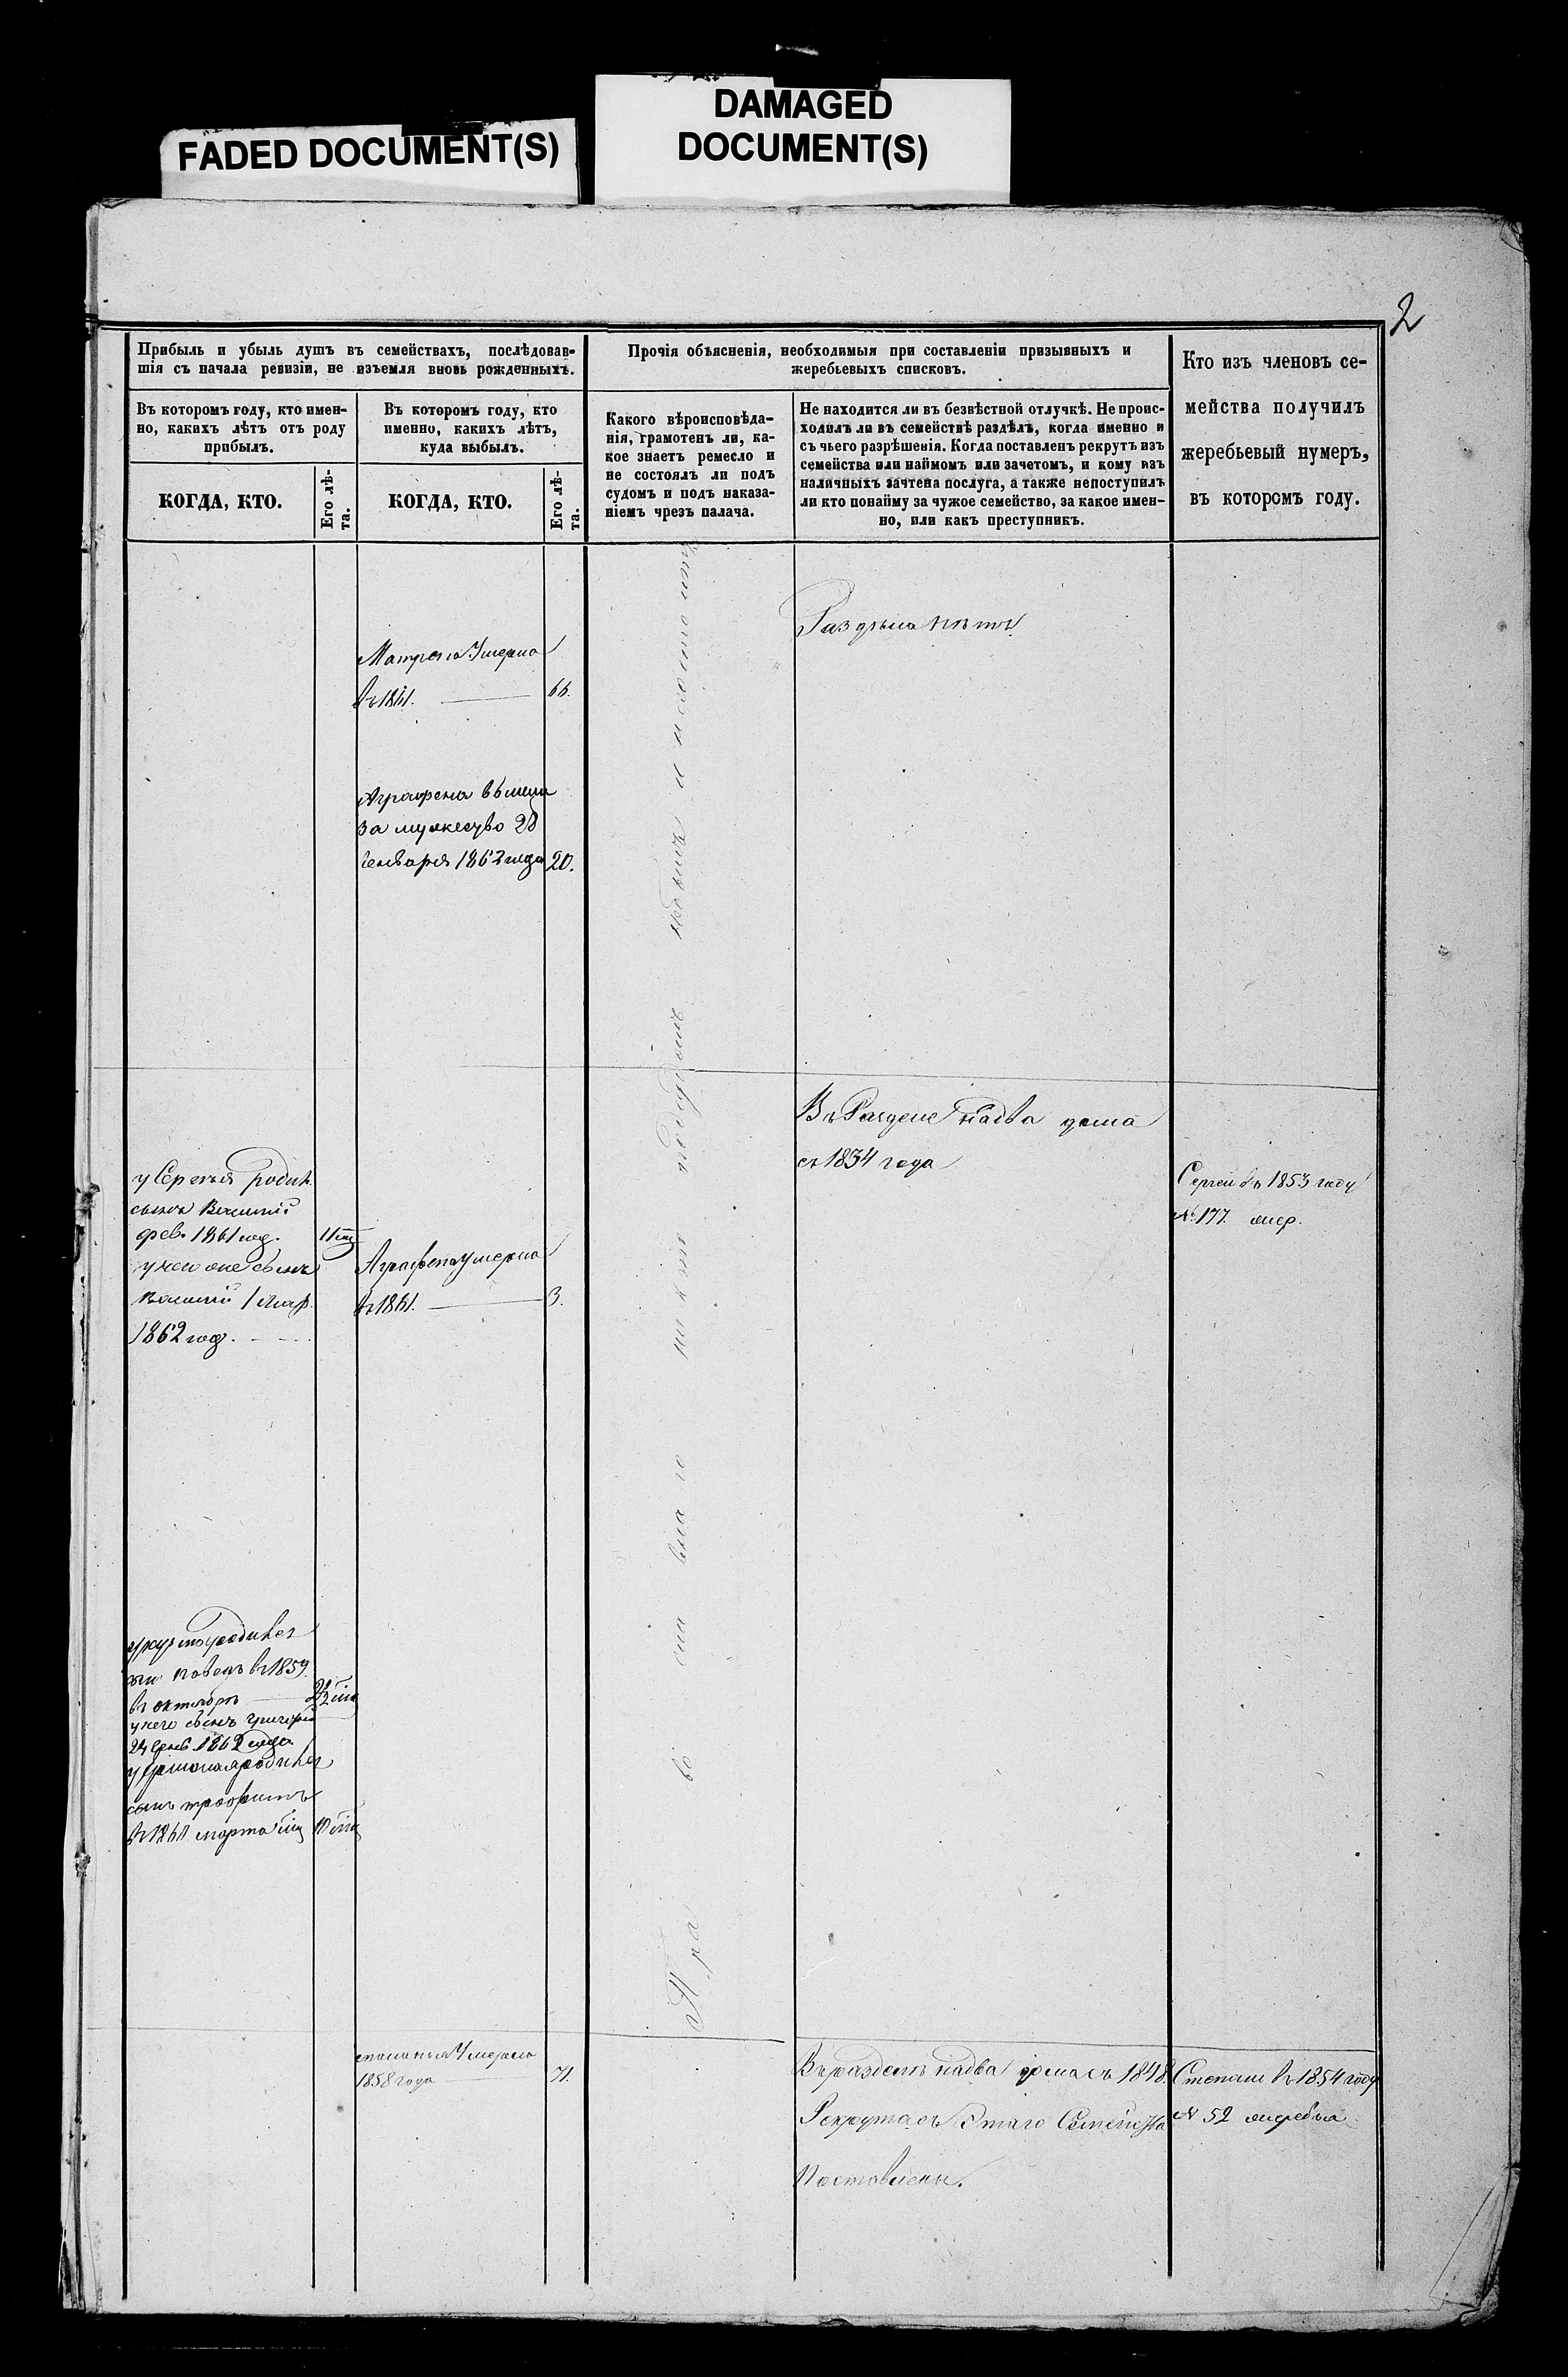 FADED DOCUMENT(S)
DAMAGED
DOCUMENT(S)
2
Прибыль и убыль душъ въ семействахъ, послѣдовав-
шія съ начала ревизіи, не изъемля вновь рожденныхъ.
Прочія объясненія, необходимыя при составленіи призывныхъ и
жеребьевыхъ списковъ.
Кто изъ членовъ се-
мейства получилъ
жеребьевый нумеръ,
въ которомъ году.
Въ которомъ году, кто имен-
но, какихъ лѣтъ отъ роду
прибылъ.
Въ которомъ году, кто
именно, какихъ лѣтъ,
куда выбылъ.
Какого вѣроисповѣда-
нія, грамотенъ ли, ка-
кое знаетъ ремесло и
не состоялъ ли подъ
судомъ и подъ наказа-
ніемъ чрезъ палача.
Не находится ли въ безвѣстной отлучкѣ. Не проис-
ходилъ ли въ семействѣ раздѣлъ, когда именно и
съ чьего разрѣшенія. Когда поставленъ рекрутъ изъ
семейства или наймомъ или зачетомъ, и кому изъ
наличныхъ зачтена послуга, а также непоступилъ
ли кто понайму за чужое семейство, за какое имен-
но, или какъ преступникъ.
КОГДА, КТО.
Его лѣ-
та.
КОГДА, КТО.
Его лѣ-
та.
Раздѣла нѣтъ.
Матрена Умерла
въ 1861. 66.
Аграфена вышла
за мужество 28
Генваря 1862 года 20.
Пра во сла вна го
подсудомъ небылъ и несостоитъ
Въ Разделе надва дома
съ 1834 года
у Сергея родил.
сынъ Василий
фев. 1861 год. 11 мц
у него сынъ
Василий 1 мар.
1862 год.
Аграфена умерла
въ 1861. 3.
Сергей въ 1853 году
№ 177. жер.
родился
сын Павелъ въ 1859
въ октябрѣ
у него сынъ Григорий
24 Генв. 1862 года
родился
сынъ трофимъ
въ 1861 марта мц 10 мц
умерла
1858 года 71.
Въ разделѣ надва дома съ 1848.
Рекрута съ Этаго Семейства
Поставлены.
Степанъ въ 1854 году
№ 52 жеребья